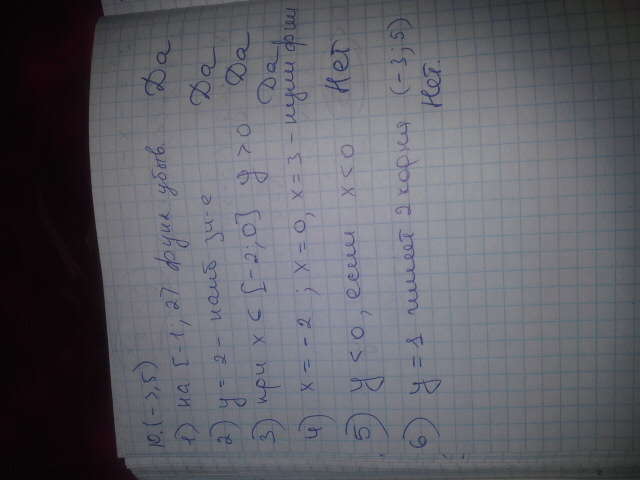 10. (-3; 5)
1) на [-1; 2] функ убыв. Да
2) y = 2 - наиб зн-е Да
3) при x ∈ [-2; 0] y > 0 Да
4) x = -2 ; x = 0, x = 3 - нули фции Да
5) y < 0, если x < 0 Нет
6) y = 1 имеет 2 корня (-3; 5) Нет.